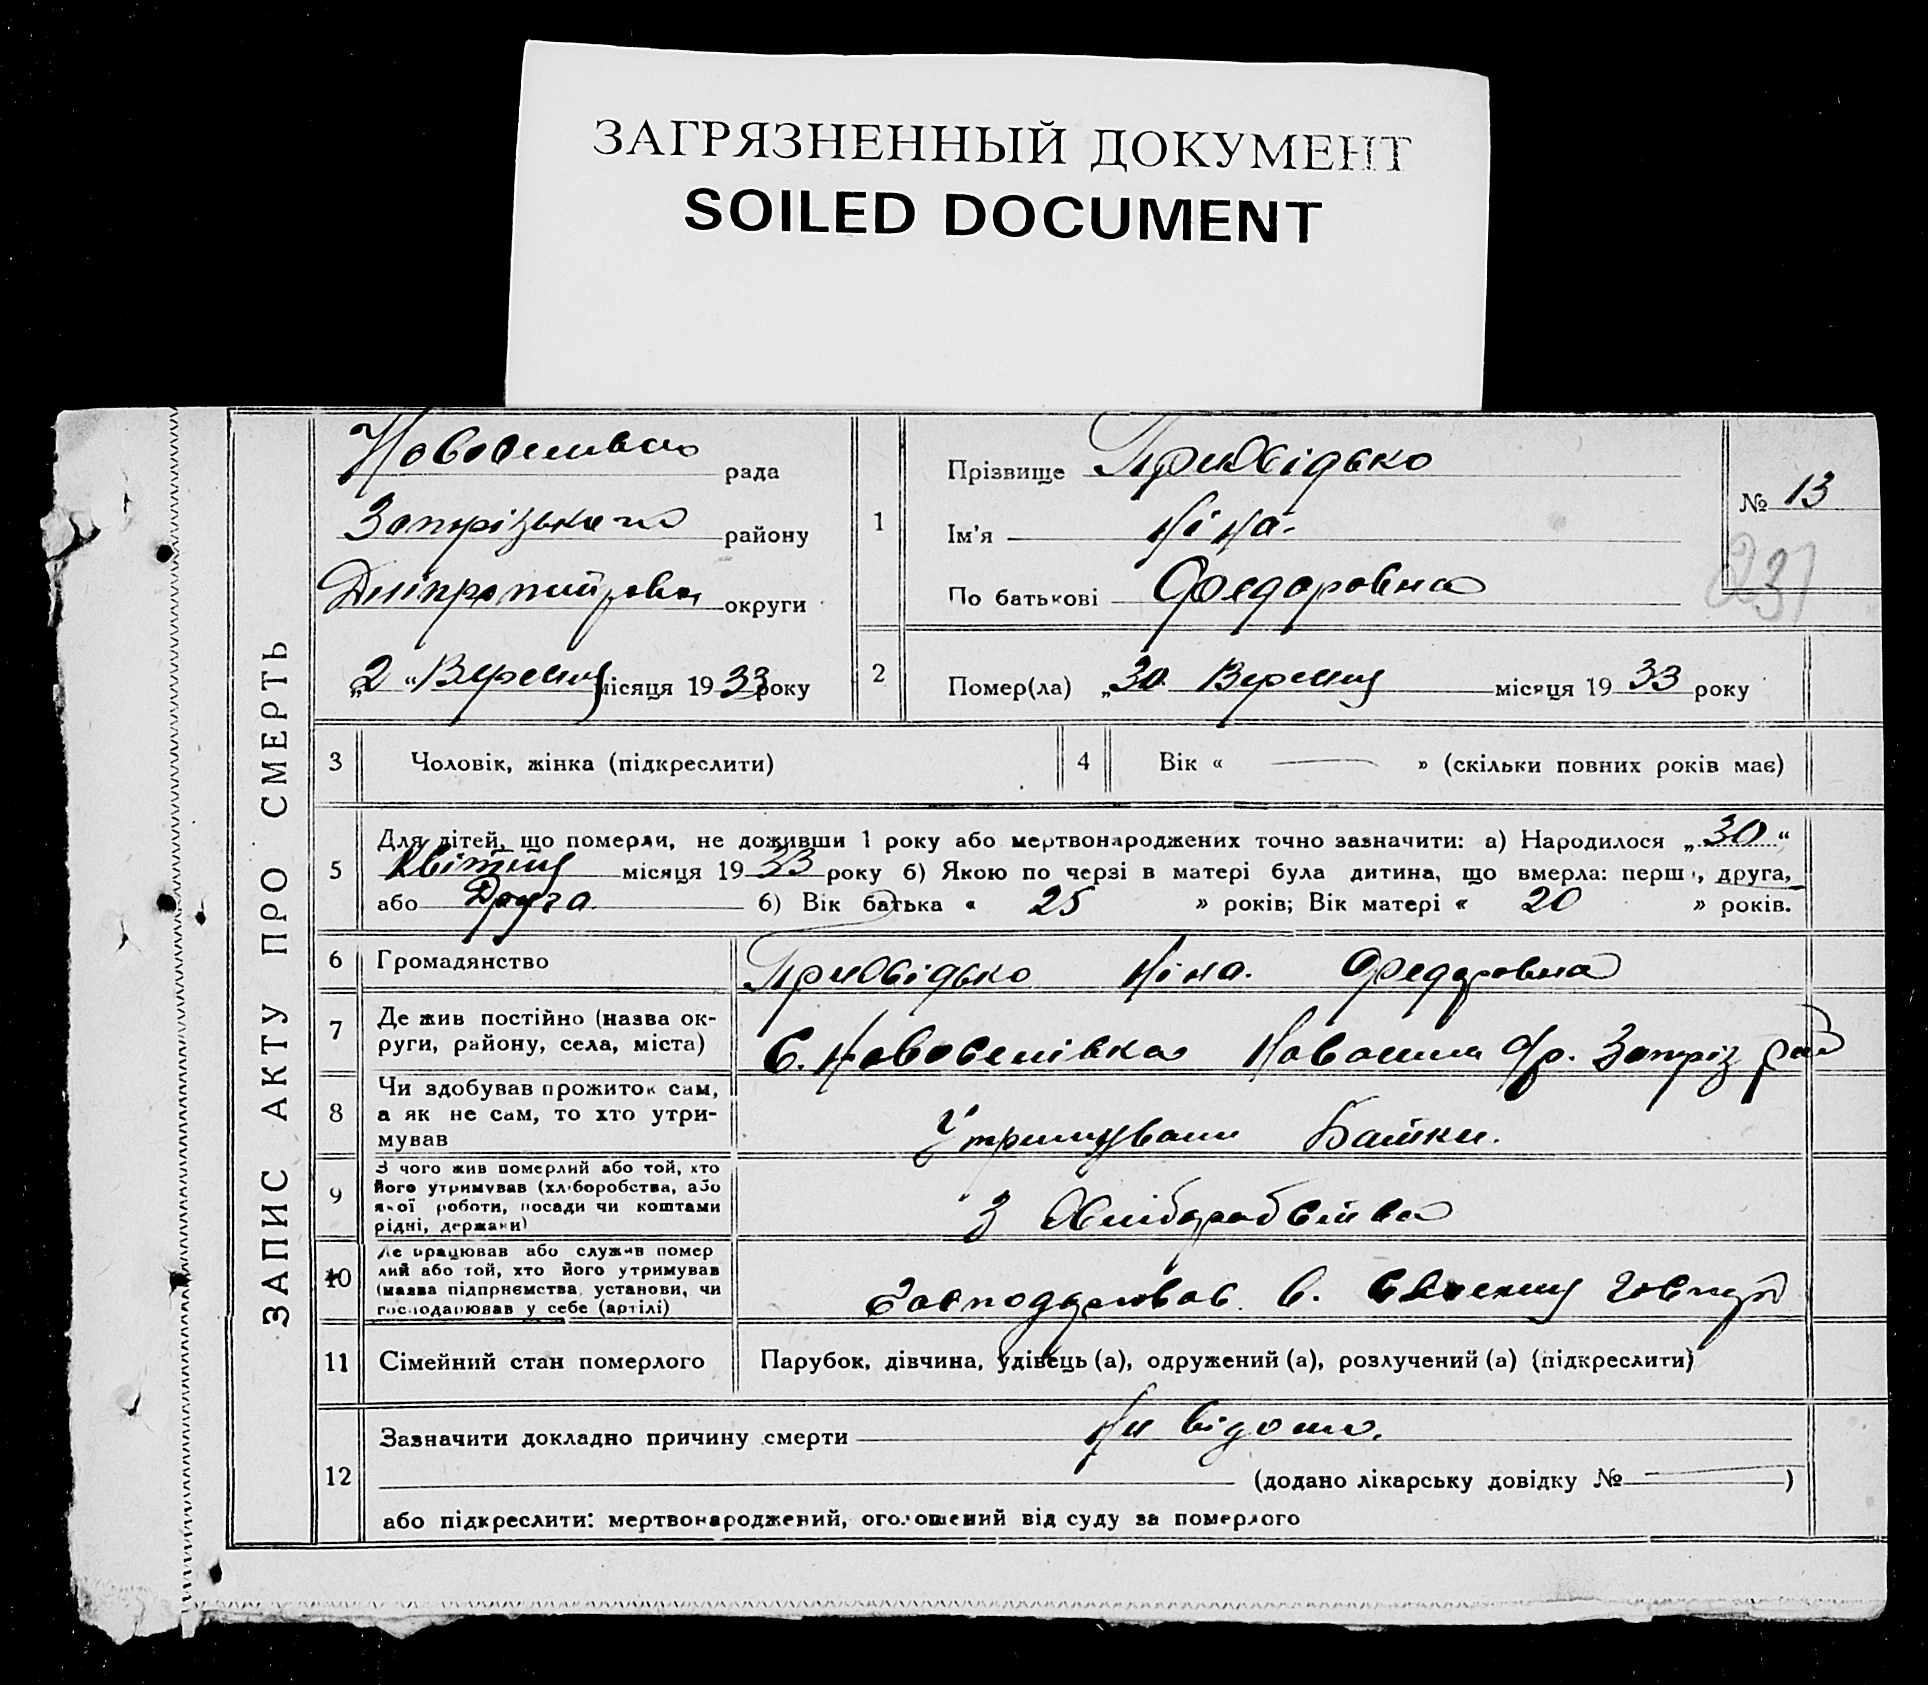 ЗАГРЯЗНЕННЫЙ ДОКУМЕНТ
SOILED DOCUMENT
ЗАПИС АКТУ ПРО СМЕРТЬ
рада
Запорізького району
округи
„2“ Вересня місяця 1933 року
1
Прізвище
Ім'я Ніна.
По батькові Федоровна
№ 13
231
2
Помер(ла) „30 Вересня місяця 1933 року
3 Чоловік, жінка (підкреслити)
4 Вік « — » (скільки повних років має)
5 Для дітей, що померли, не доживши 1 року або мертвонароджених точно зазначити: а) Народилося „30“
Квітня місяця 1933 року б) Якою по черзі в матері була дитина, що вмерла: перша, друга,
або Друга 6) Вік батька « 25 » років; Вік матері « 20 » років.
6 Громадянство Ніна. Федоровна
7 Де жив постійно (назва ок-
руги, району, села, міста)
С. Новоселівка
8 Чи здобував прожиток сам,
а як не сам, то хто утри-
мував
Утримували Батки.
9 З чого жив померлий або той, хто
його утримував (хліборобства, або
якої роботи, посади чи коштами
рідні, держави)
З Хліборобства
10 Де працював або служив помер
лий або той, хто його утримував
(назва підприємства, установи, чи
господарював у себе (артілі)
11 Сімейний стан померлого Парубок, дівчина, удівець (а), одружений (а), розлучений (а) (підкреслити)
12 Зазначити докладно причину смерти Ни відомо.
(додано лікарську довідку № — )
або підкреслити: мертвонароджений, оголошений від суду за померлого